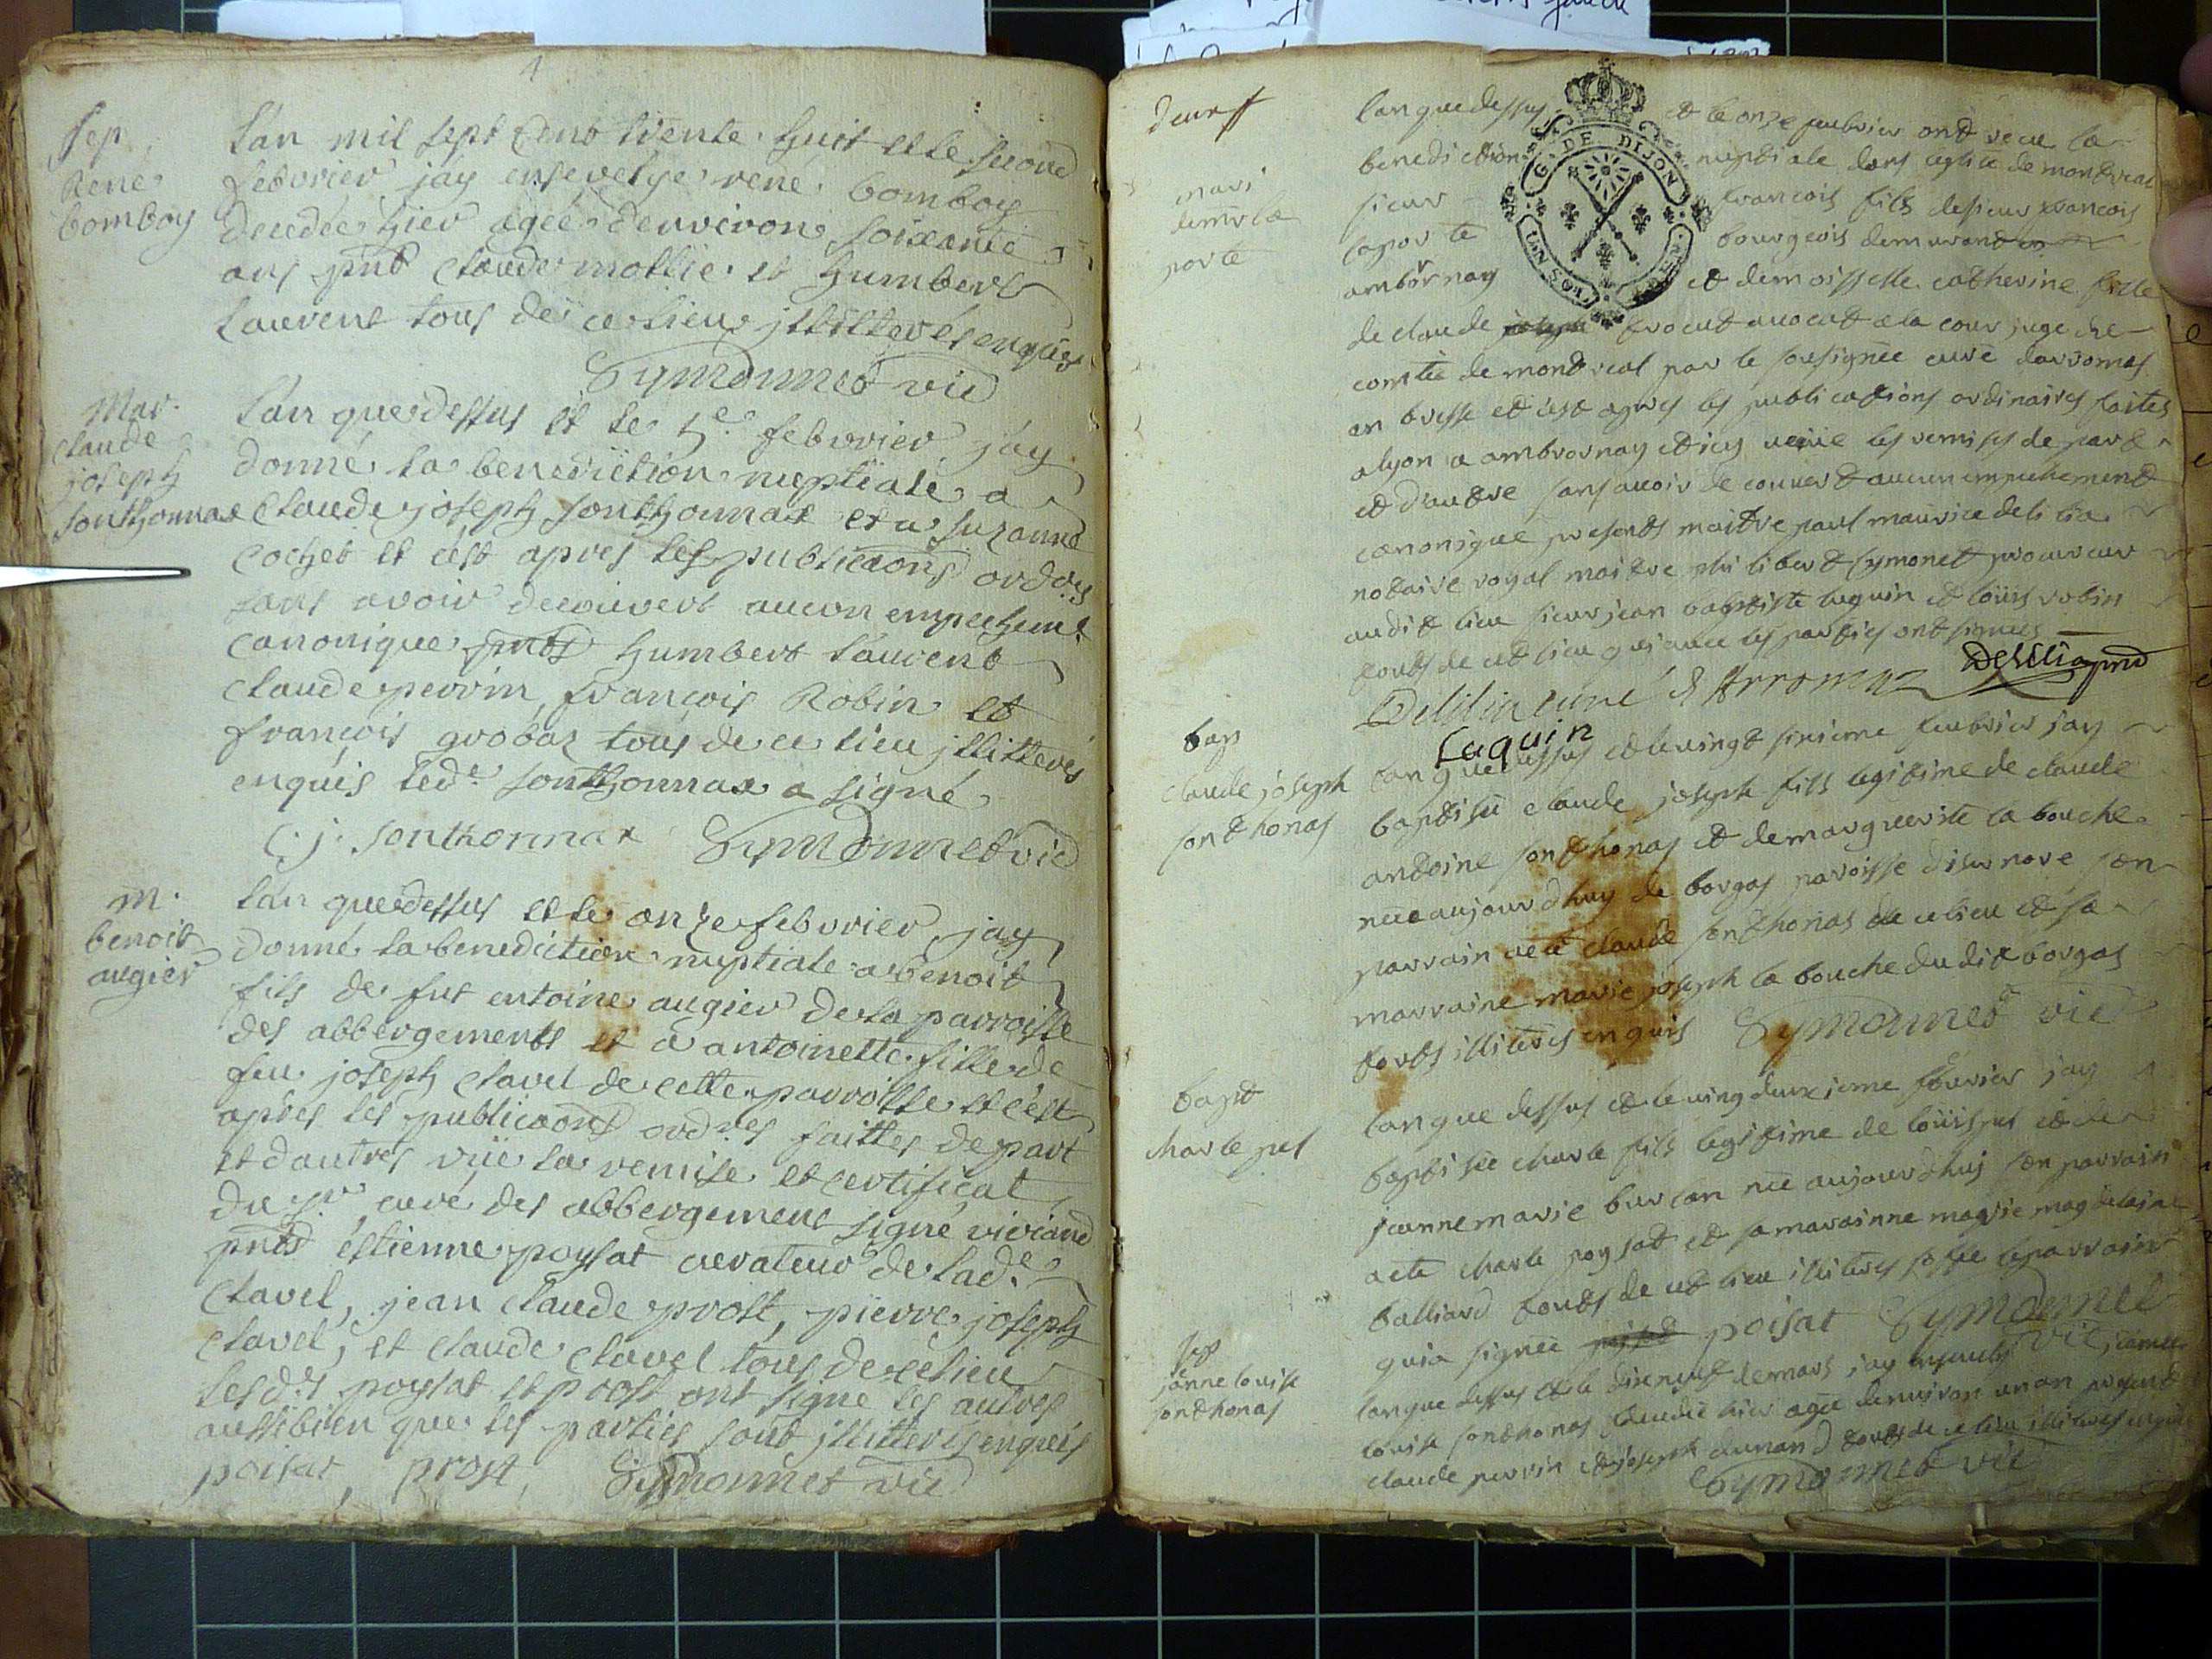 Sep.
René
bomboy
Lan mil sept cent trente huit et le second
febvrier jay ensevelye rené bomboy
decedée hier agée denviron soixante
ans pnt Claude mollie et humbert
Laurent tous de ce lieu jllitterés enquis
Symonnet vic
Mar.
Claude
joseph
Sonthonnax
Lan que dessus et le 5e febvrier jay
donné la benediction nuptiale a
Claude joseph Sonthonnax et a Suzanne
Cochet et cest apres les publicaons ordres
sans avoir decouvert aucun empechemt
canonique pnts humbert Laurent
Claude perrin, françois Robin et
françois grobas tous de ce lieu jllitterés
enquis led. Sonthonnax a signé
C. j. Sonthonnax Symonnet vic
M.
benoit
augier
Lan que dessus et le onze febvrier jay
donné la benediction nuptiale a benoit
fils de fut entoine augier de la parroisse
des abbergements et a antoinette fille de
feu joseph Clavel de cette parroisse et cest
apres les publicaons ordres faittes de part
et dautres vüe la remise et certificat
du sr curé des abbergement signé viviand
pnts estienne poysat curateur de lade
Clavel, jean Claude prost, pierre joseph
Clavel, et Claude Clavel tous de ce lieu
lesds poysat et prost ont signe les autres
aussibien que les parties sont jllitterés enquis
poisat, prost, Symonnet vic
mari
laporte
lan que dessus et le onze feubrier ont receu la
benediction nuptiale dans leglise de montreal
sieur françois fils de sieur francois
laporte bourgeois demurant
ambornay et demoisselle catherine fille
de claude avocat a la cour juge de
comté de montreal par le sousignée curé darromas
en bresse et cest apres les publications ordinaires faites
a lyon a ambrornay et icy veüe les remises de part
et dautre sans avoir decouvert aucun empechement
canonique presents maitre paul maurice delilia
notaire royal maitre philibert Symonet procureur
audit lieu sieur jean baptiste luquin et loüis robin
touts de cet lieu qui avec les parties ont signés
Delilia curé d'Arromaz Delilia
Luquin
bap
claude joseph
sonthonas
lan que dessus et le vingt sixieme feubrier jay
baptisée claude joseph fils legitime de claude
antoine sonthonas et de marguerite la bouche
née aujourdhuy de borgas paroisse disernore son
parrain a eté claude sonthonas de ce lieu et sa
marraine marie joseph la bouche dudit borgas
touts illiterés enquis Symonnet vic
bapt
charle
lan que dessus et le ving deuxieme feuvrier jay
baptisée charle fils legitime de loüis et de
jeanne marie burlan née aujourdhuj son parrain
a eté charle poysat et sa marainne magdelaine
balliard touts de cet lieu illiterés le parrain
qui a signée poisat Symonnet
vic
Sep
jeanne louise
sonthonas
lan que dessus et le dixneuf de mars jay jeanne
louise sonthonas decedée hier agée denviron un an present
claude perrin et joseph dunand touts de ce lieu illiterés enquis
Symonnet vic
G. DE DIJON
UN SOL